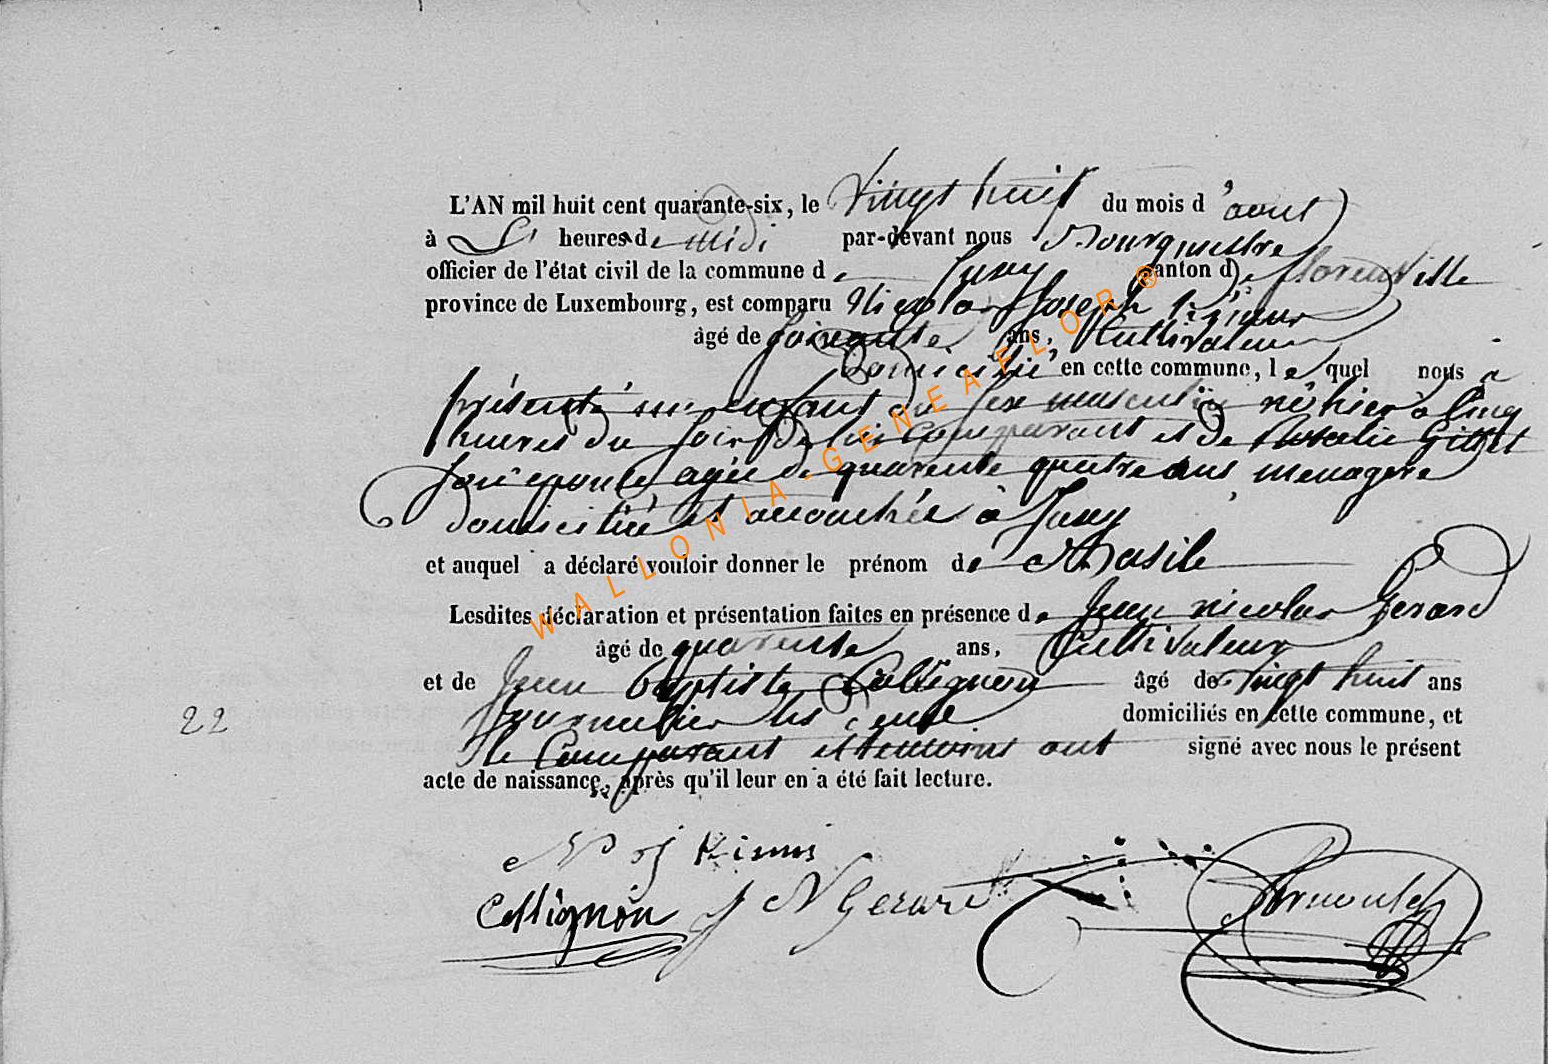 L'AN mil huit cent quarante-six, le vingt huit du mois d'aout
à heures de midi par-devant nous Bourguestre
officier de l'état civil de la commune de Suxy canton de florenville
province de Luxembourg, est comparu Nicolas Joseph
âgé de soixante ans, Cultivateur
Domicilié en cette commune, lequel nous a
présenté un enfant du sexe masculin né hier a cinq
heures du soir de lui comparant et de Rosalie
son épouse agée de quarante quatre ans menagere
domiciliée et accouchée à Suxy
et auquel a déclaré vouloir donner le prénom de Basile
Lesdites déclaration et présentation faites en présence de Jean nicolas Gerard
âgé de quarente ans, Cultivateur
et de Jean Baptiste Collignon âgé de vingt huit ans
Journalier les deux domiciliés en cette commune, et
le Comparant et temoins ont signé avec nous le présent
acte de naissance, après qu'il leur en a été fait lecture.
22
Collignon J N Gerard
WALLONIA-GENEAFLOR ®